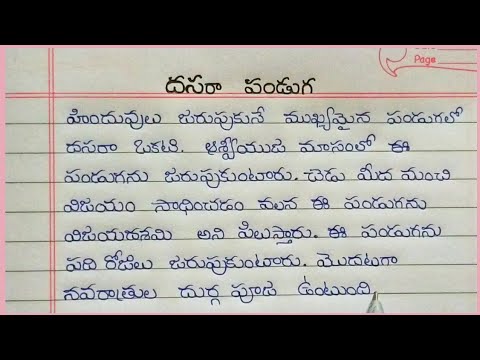 Page
దసరా పండుగ
హిందువులు జరుపుకునే ముఖ్యమైన పండుగలలో
దసరా ఒకటి. ఆశ్వీయుజ మాసంలో ఈ
పండుగను జరుపుకుంటారు. చెడు మీద మంచి
విజయం సాధించడం వలన ఈ పండుగను
విజయదశమి అని పిలుస్తారు. ఈ పండుగను
పది రోజులు జరుపుకుంటారు. మొదటగా
నవరాత్రుల దుర్గ పూజ ఉంటుంది